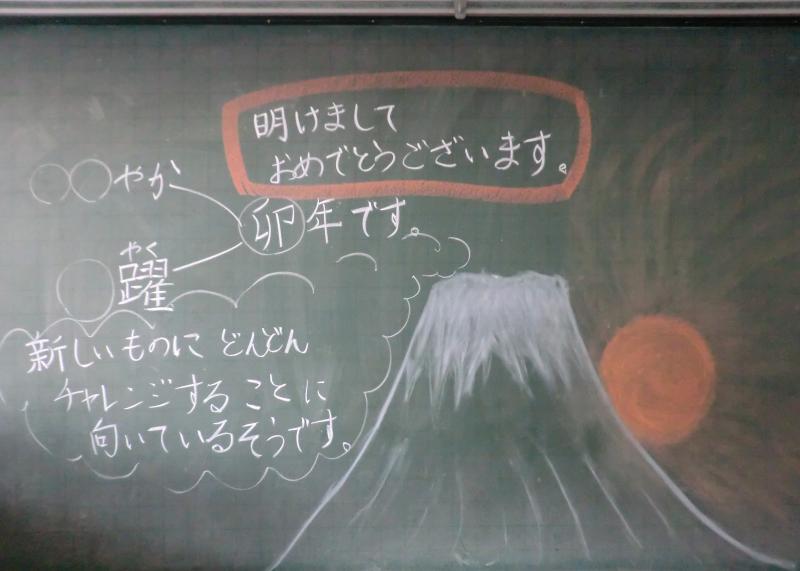 明けまして
おめでとうございます。
○○やか
卯年です。
やく
○躍
新しいものに どんどん
チャレンジすることに
向いているそうです。